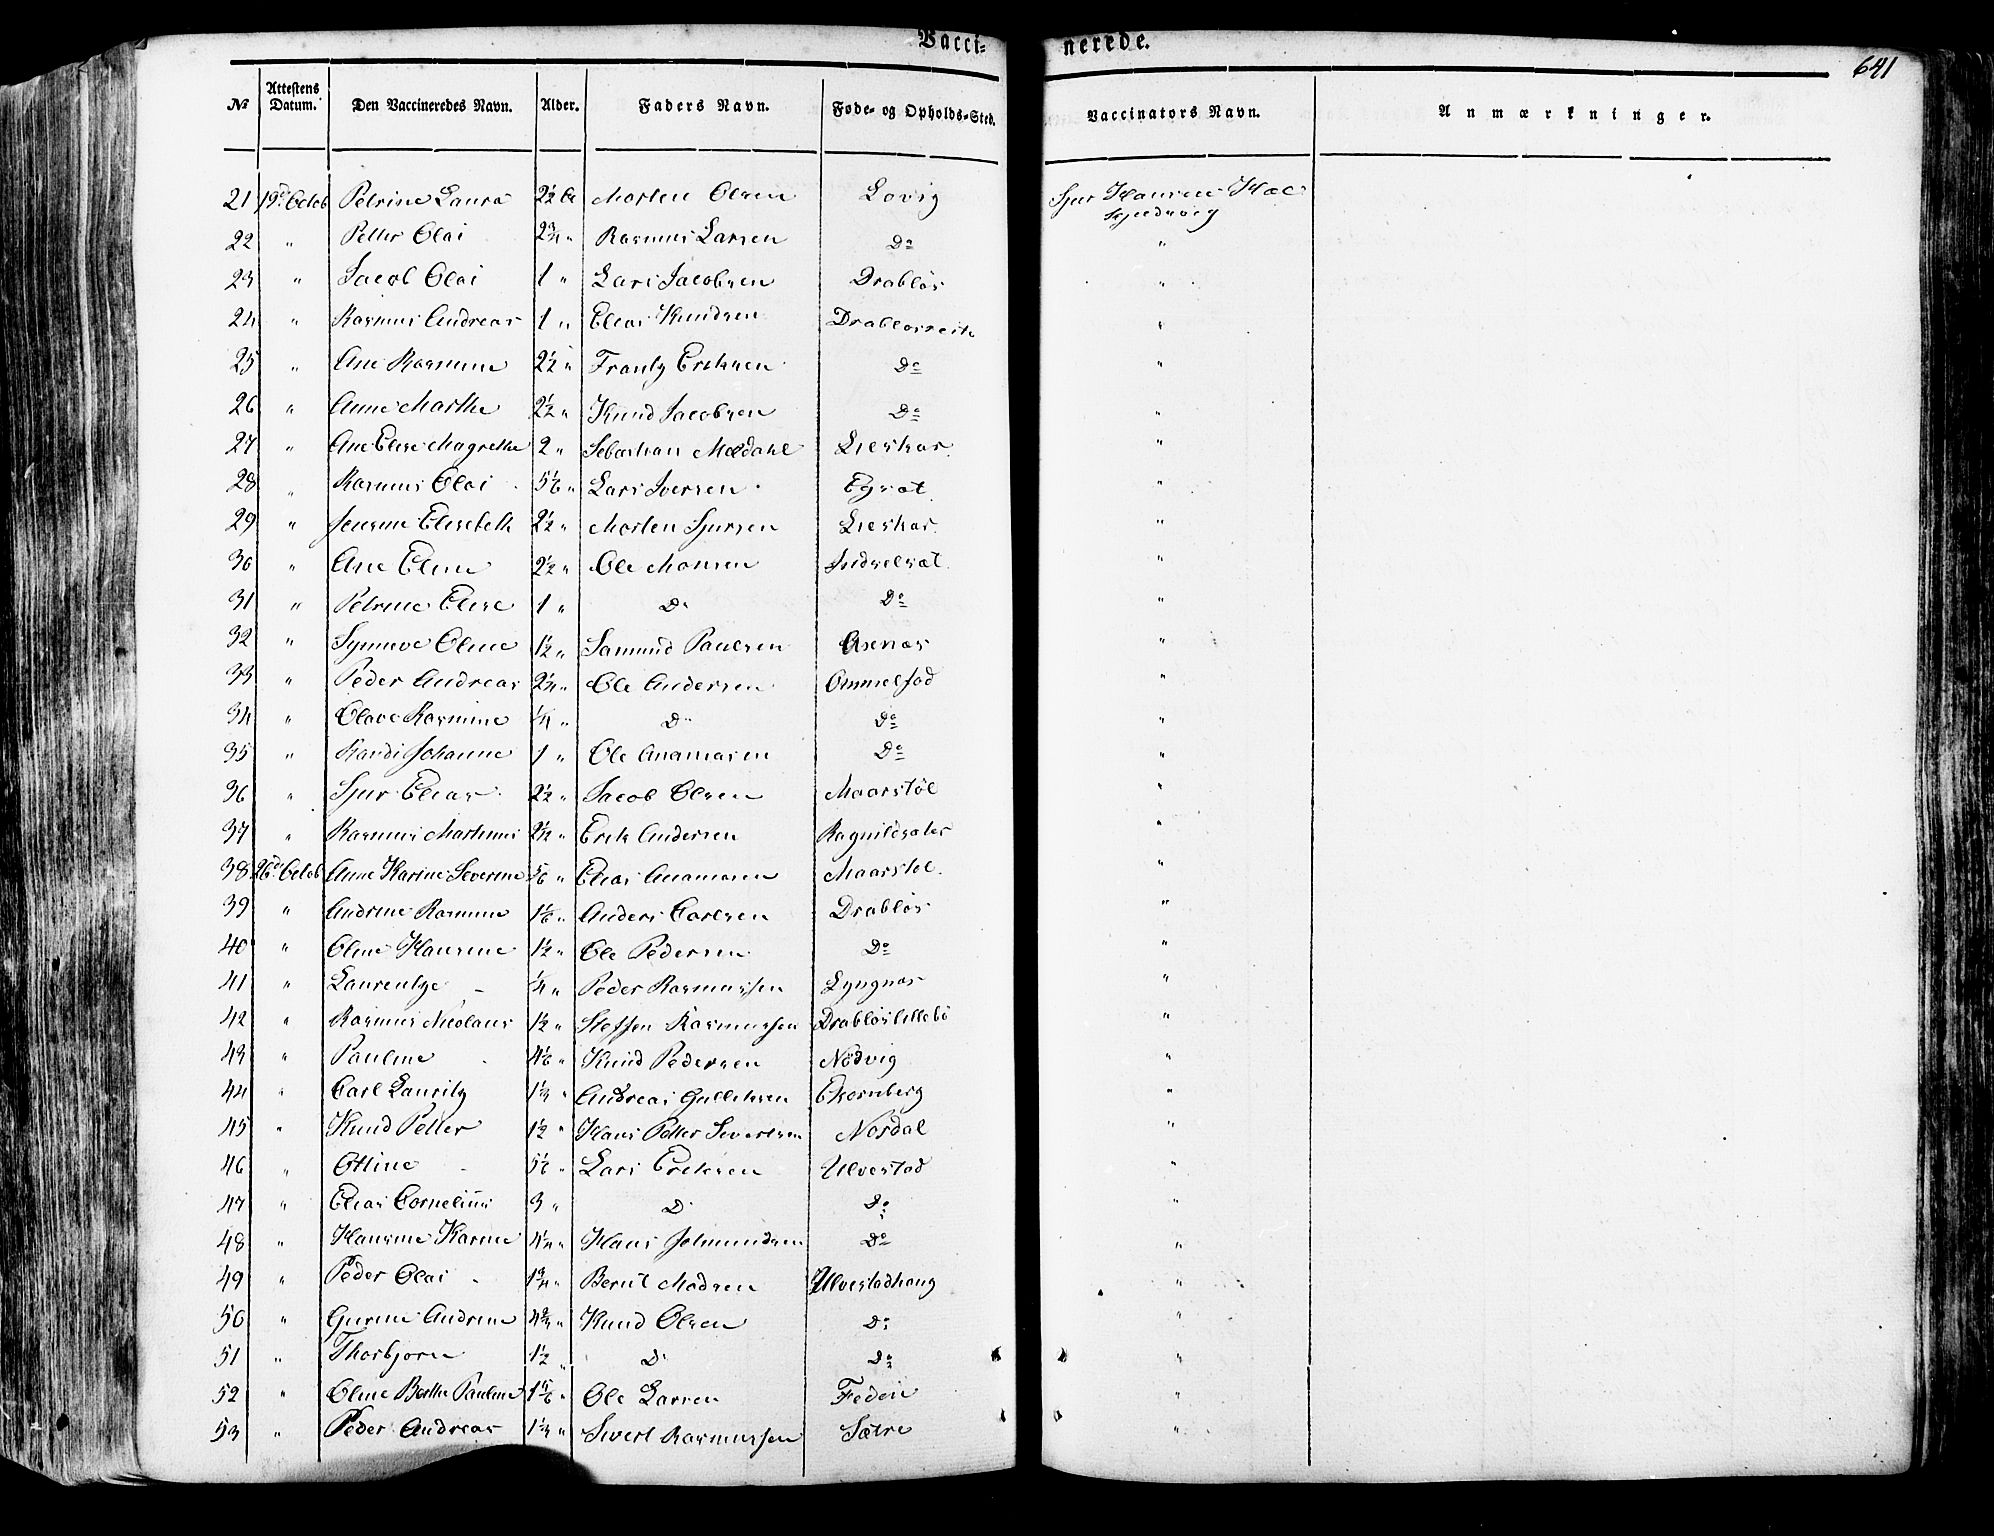 Vacci-nerede.
641
№ Attestens Datum. Den Vaccineredes Navn. Alder. Faders Navn. Føde- og Opholds-Sted. Vaccinators Navn. Anmærkninger.
21 19de Octob Petrine Laura 2½ Morten Olsen Lovig Sjur Hansen
22 " Petter Olai 2¾ " Rasmus Larsen Do "
23 " Jacob Olai 1 " Lars Jacobsen Drabløs "
24 " Rasmus Andreas 1 " Elias Knudsen "
25 " Ane Rasmine 2½ " Frantz Eriksen Do "
26 " Anne Marthe 2½ " Knud Jacobsen Do "
27 " Ane Elise Magrethe 2 " Sebastian Mældahl Lieskar "
28 " Rasmus Olai 5⅙ " Lars Iversen "
29 " Jensine Elisebeth 2½ " Morten Sjursen Lieskar "
30 " Ane Eline 2½ " Ole Monsen Indresæt "
31 " Petrine Elise 1 " Do Do "
32 " Synneve Oline 1½ " Samund Paulsen Asenæs "
33 " Peder Andreas 2¼ " Ole Andersen "
34 " Olave Rasmine ¼ " Do Do "
35 " Randi Johanne 1 " Ole Anamasen Do "
36 " Sjur Elias 2½ " Jacob Olsen Maarstøl "
37 " Rasmus Martinus 2½ " Erik Andersen Ragnildsæter "
38 26de Octob Anne Karine Severine 5/6 " Elias Anamasen Maarstøl "
39 " Andrine Rasmine 1⅙ " Anders Carlsen Drabløs "
40 " Oline Hansine 1½ " Ole Pedersen Do "
41 " Laurentze ¼ " Peder Rasmussen Lyngnæs "
42 " Rasmus Nicolaus 1½ " Steffen Rasmussen Drabløslillebø "
43 " Pauline 4⅙ " Knud Pedersen Nødvig "
44 " Carl Lauritz 1⅓ " Andreas Gulliksen Ekornberg "
45 " Knud Petter 1½ " Hans Petter Sivertsen Nordal "
46 " Ottine 5½ " Lars Eriksen Ulvestad "
47 " Elias Cornelius 3 " Do Do "
48 " Hansine Karine 4¼ " Hans Jetmundsen Do "
49 " Peder Olai 1¾ " Bernt Madsen Ulvestadhaug "
50 " Gurine Andrine 4¾ " Knud Olsen Do "
51 " Thorbjørn 1½ " Do Do "
52 " Oline Berthe Pauline 1⅚ " Ole Larsen "
53 " Peder Andreas 1⅓ " Sivert Rasmussen Sætre "